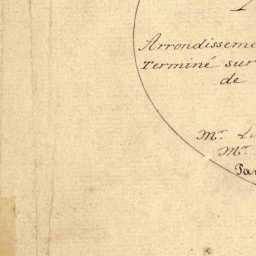 Arrondisseme
Terminé sur
de
Mr. L
Mr.
Par